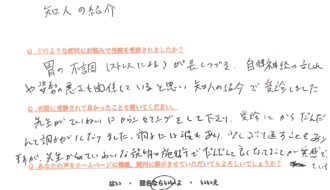 知人の紹介
Q.どのような症状にお悩みで当院を受診されましたか?
胃の不調(ストレスによる)が長くつづき、自律神経の乱れ
や姿勢の悪さも関係していると思い知人の紹介で受診しました
Q.実際に受診されて良かったことを書いてください。
先生がていねいにカウンセリングをして下さり、受診してからだんだ
んと調子がよくなりました。調子には波もあり、少しずつ戻ることもあり
ますが、先生がていねいな説明や施術でだんだんと良くなることが実感で
Q.あなたの声をホームページに掲載、院内に掲示させていただいてもよろしいでしょうか?
はい ・ 匿名ならいいよ ・ いいえ